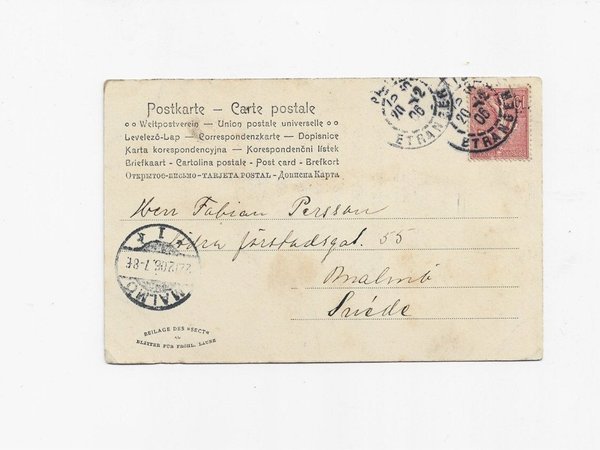 Postkarte — Carte postale
Weltpostverein — Union postale universelle
Levelező-Lap — Correspondenzkarte — Dopisnice
Karta korespondencyjna — Korespondenční lístek
Briefkaart - Cartolina postale - Post card - Brefkort
Открытое-письмо - TARJETA POSTAL - Дописна Карта
ETRANGER
20 12 06
ETRANGER
Herr Fabian Persson
förstadsgat. 55
Malmö
Suède
MALMÖ
BEILAGE DES »SECT«
BLÄTTER FÜR FRÖHL. LAUNE